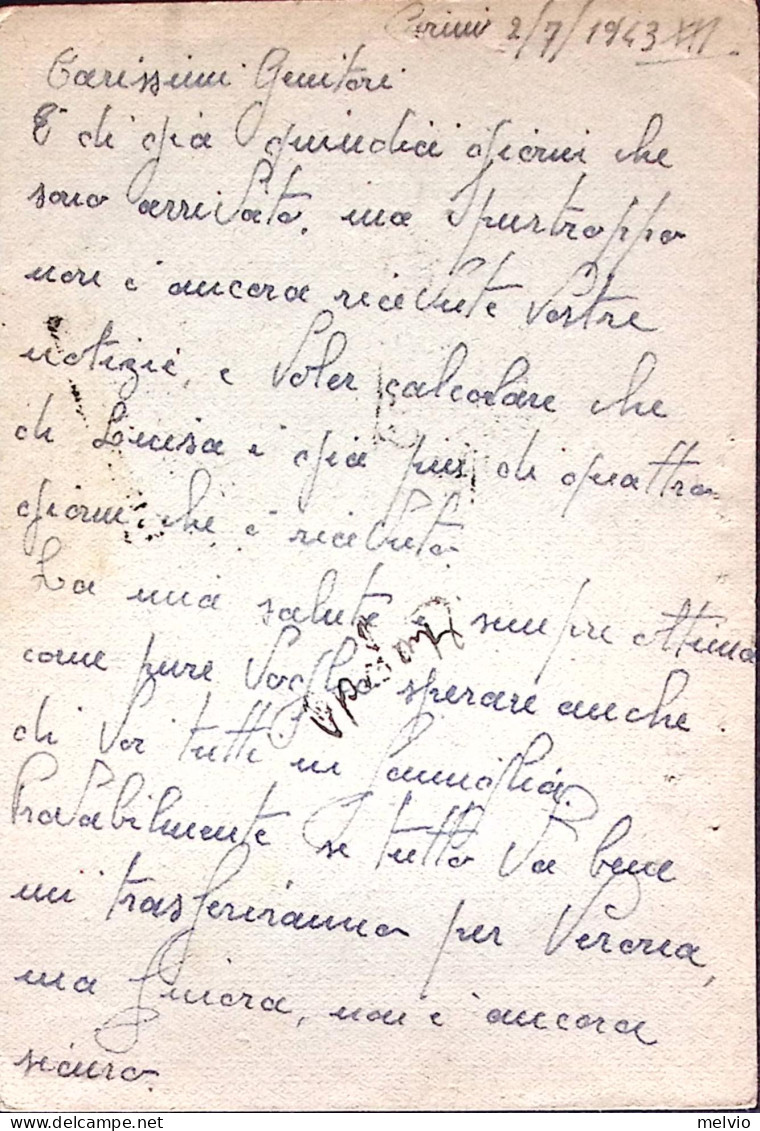 Carini 2/7/1943 XXI
Carissimi Genitori
È di già quindici giorni che
sono arrivato, ma purtroppo
non è ancora ricevute vostre
notizie, e voler calcolare che
di Luisa è già più di quattro
giorni che è ricevuto.
La mia salute è sempre ottima
come pure voglio sperare anche
di voi tutti in famiglia.
Probabilmente se tutto va bene
mi trasferiranno per Verona,
ma finora, non è ancora
sicuro.
melvio